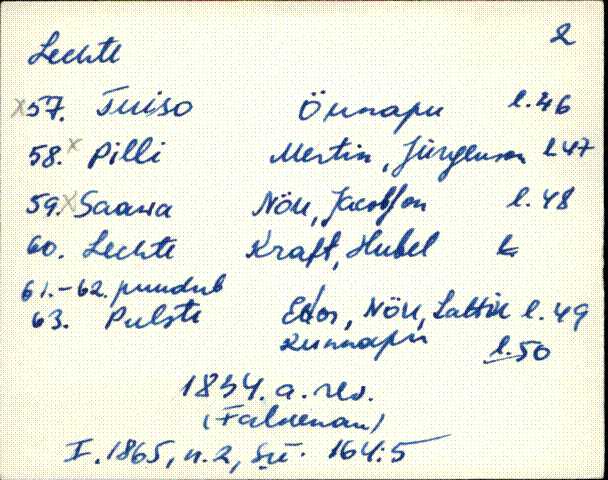 2
Lechte
x 57. Tuiso Õunapu l. 46
58. x Pilli Mertin, Jürgenson l 47
59. x Saarva Nõu, Jacobson l. 48
60. Lechte Kraft, Hubel k
61.-62. puudub
63. Pulste Edor, Nõu, Lattik l. 49
Kunnapu l. 50
1834. a. rev.
(Falkenau)
I. 1865, n. 2, sü. 164:5